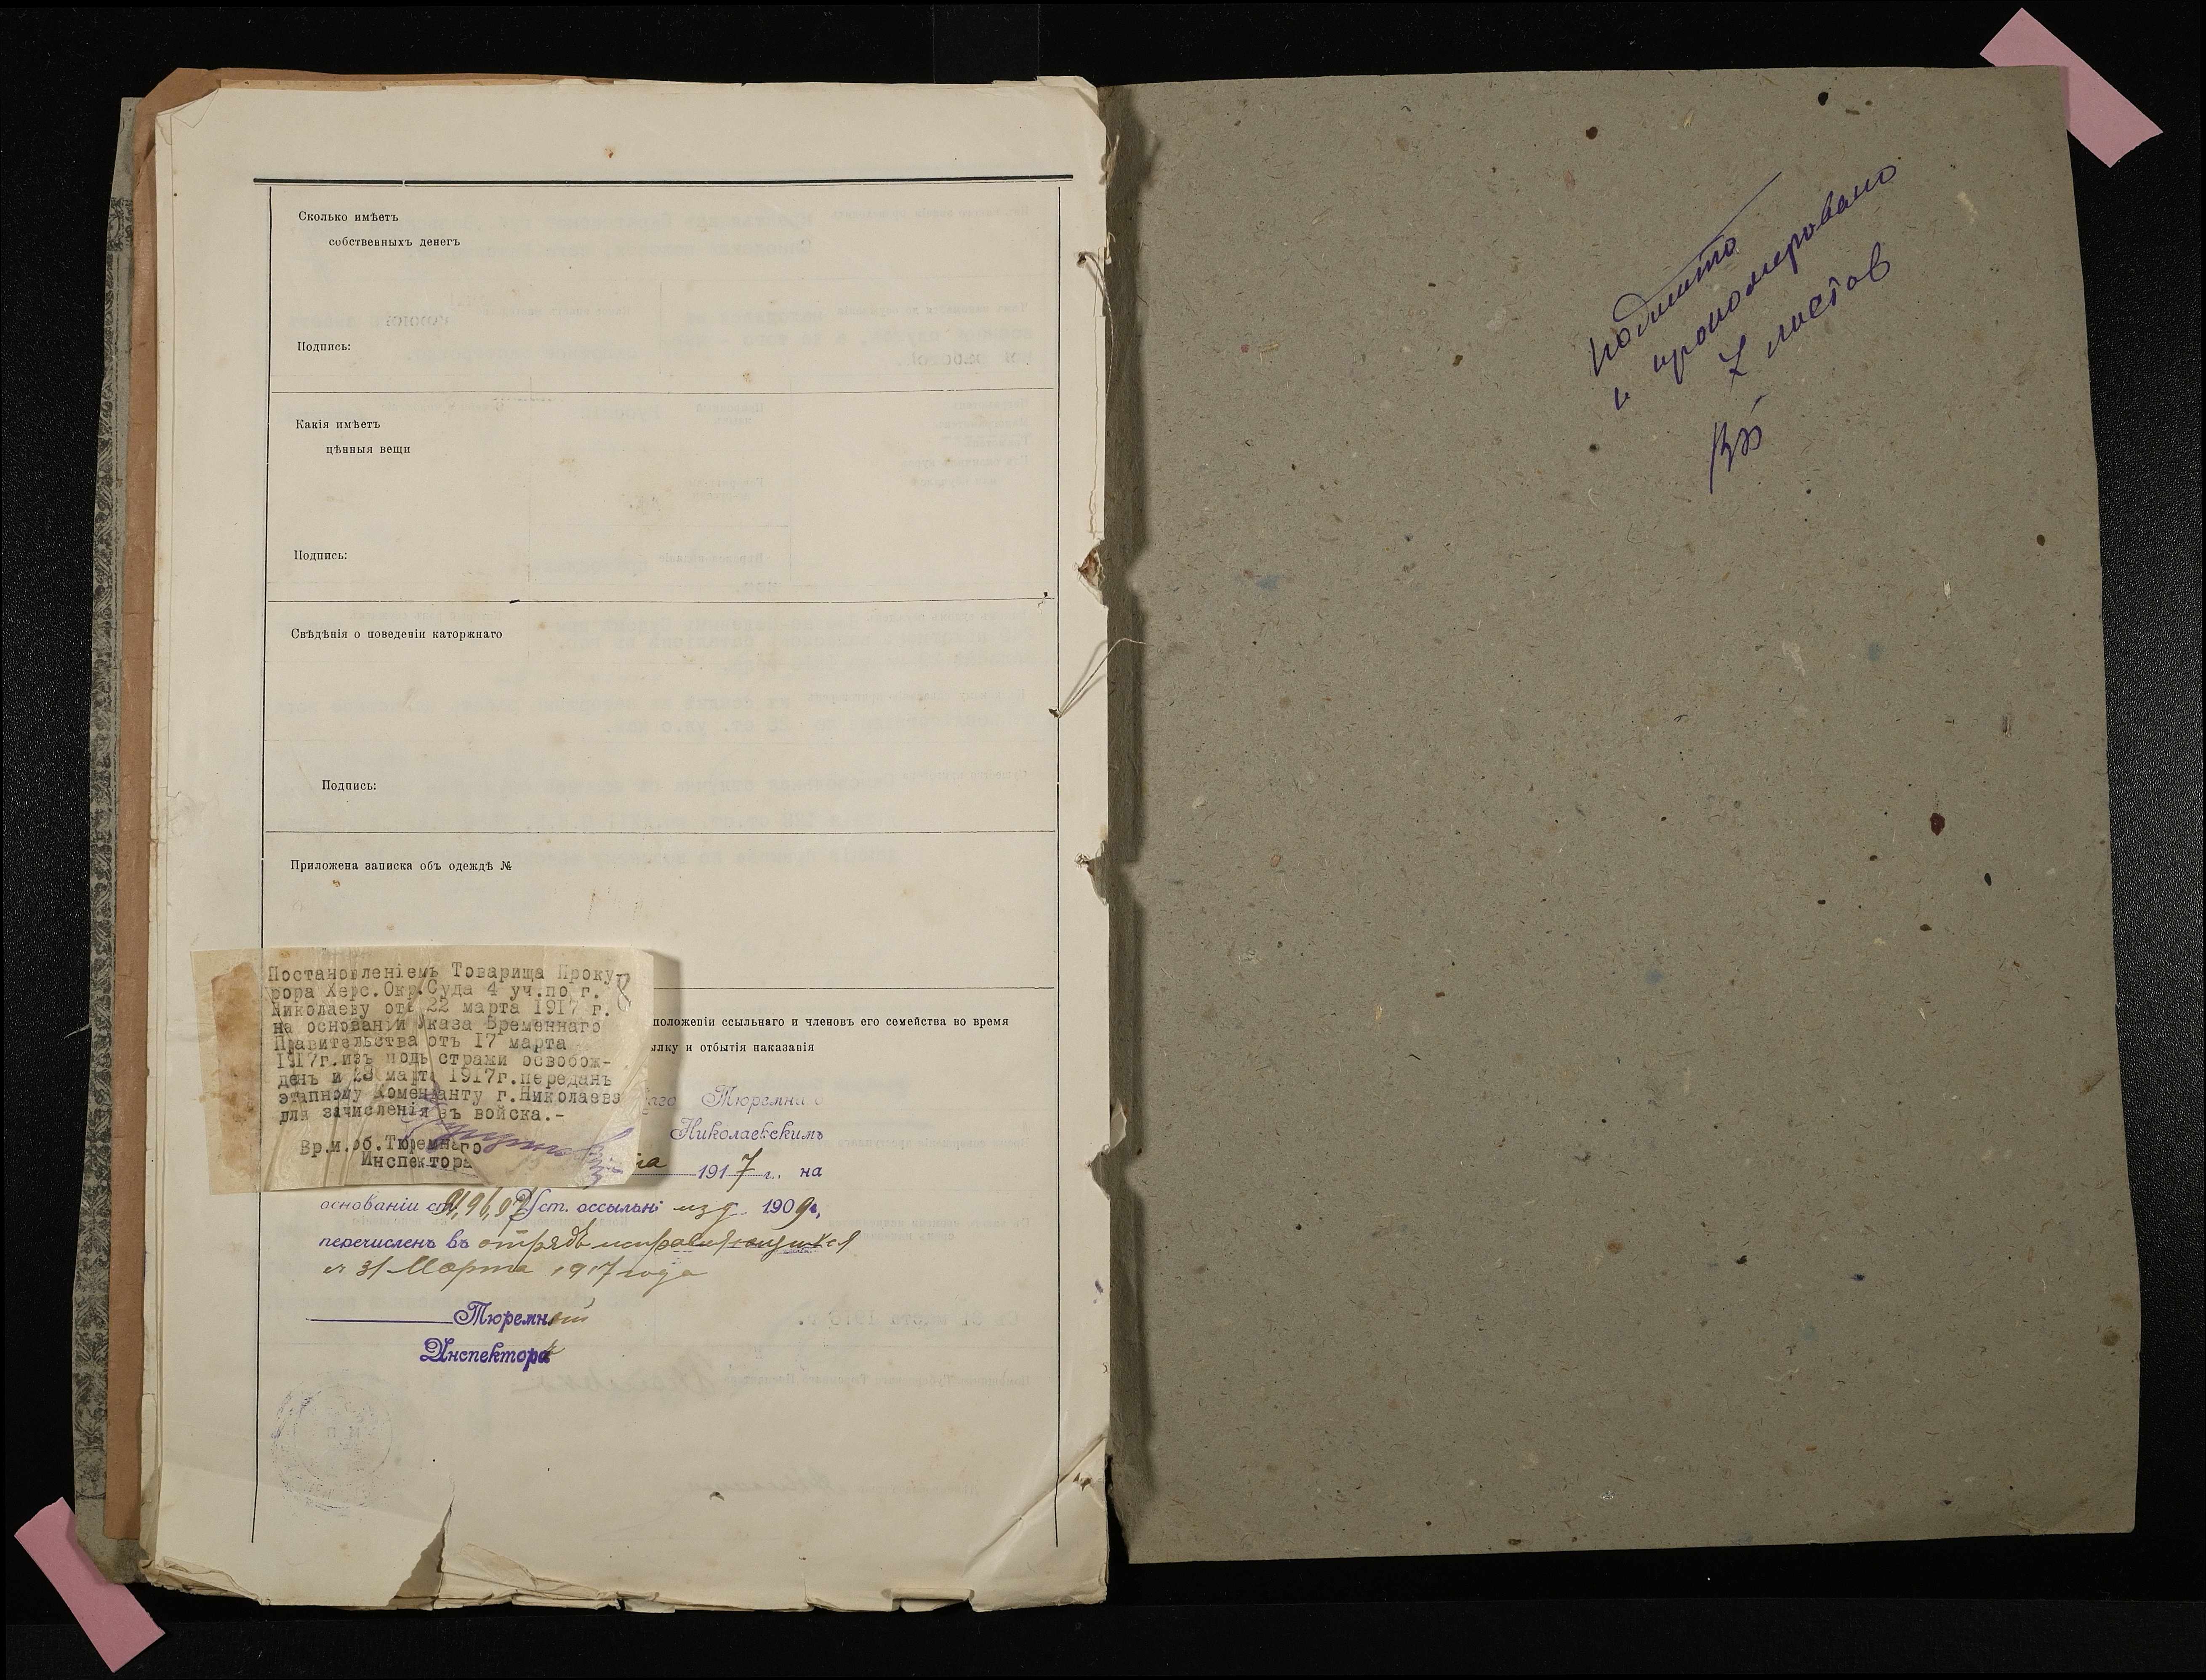 Сколько имѣетъ
собственныхъ денегъ
Подпись:
Какія имѣетъ
цѣнныя вещи
Подпись:
Свѣдѣнія о поведеніи каторжнаго
Подпись:
Приложена записка объ одеждѣ №
Постановленіемъ Товарища Проку
рора Херс.Окр.Суда 4 уч.по г.
Николаеву отъ 22 марта 1917 г.
на основаніи Указа Временнаго
Правительства отъ 17 марта
1917г.изъ подъ стражи освобож-
денъ и 23 марта 1917г.переданъ
этапному Коменданту г.Николаева
для зачисленія въ войска.-
Вр.и.об.Тюремнаго
Инспектора
8
положеніи ссыльнаго и членовъ его семейства во время
ылку и отбытія наказанія
аго Тюремнаго
Николаевскимъ
та 1917 г. на
основаніи ст. 91, 96, 97 Уст. о ссыльн. изд. 1909 г.,
перечисленъ въ отрядъ исправляющихся
съ 31 Марта 1917 года
Тюремный
Инспекторъ
Подшито
и пронумеровано
7 листов